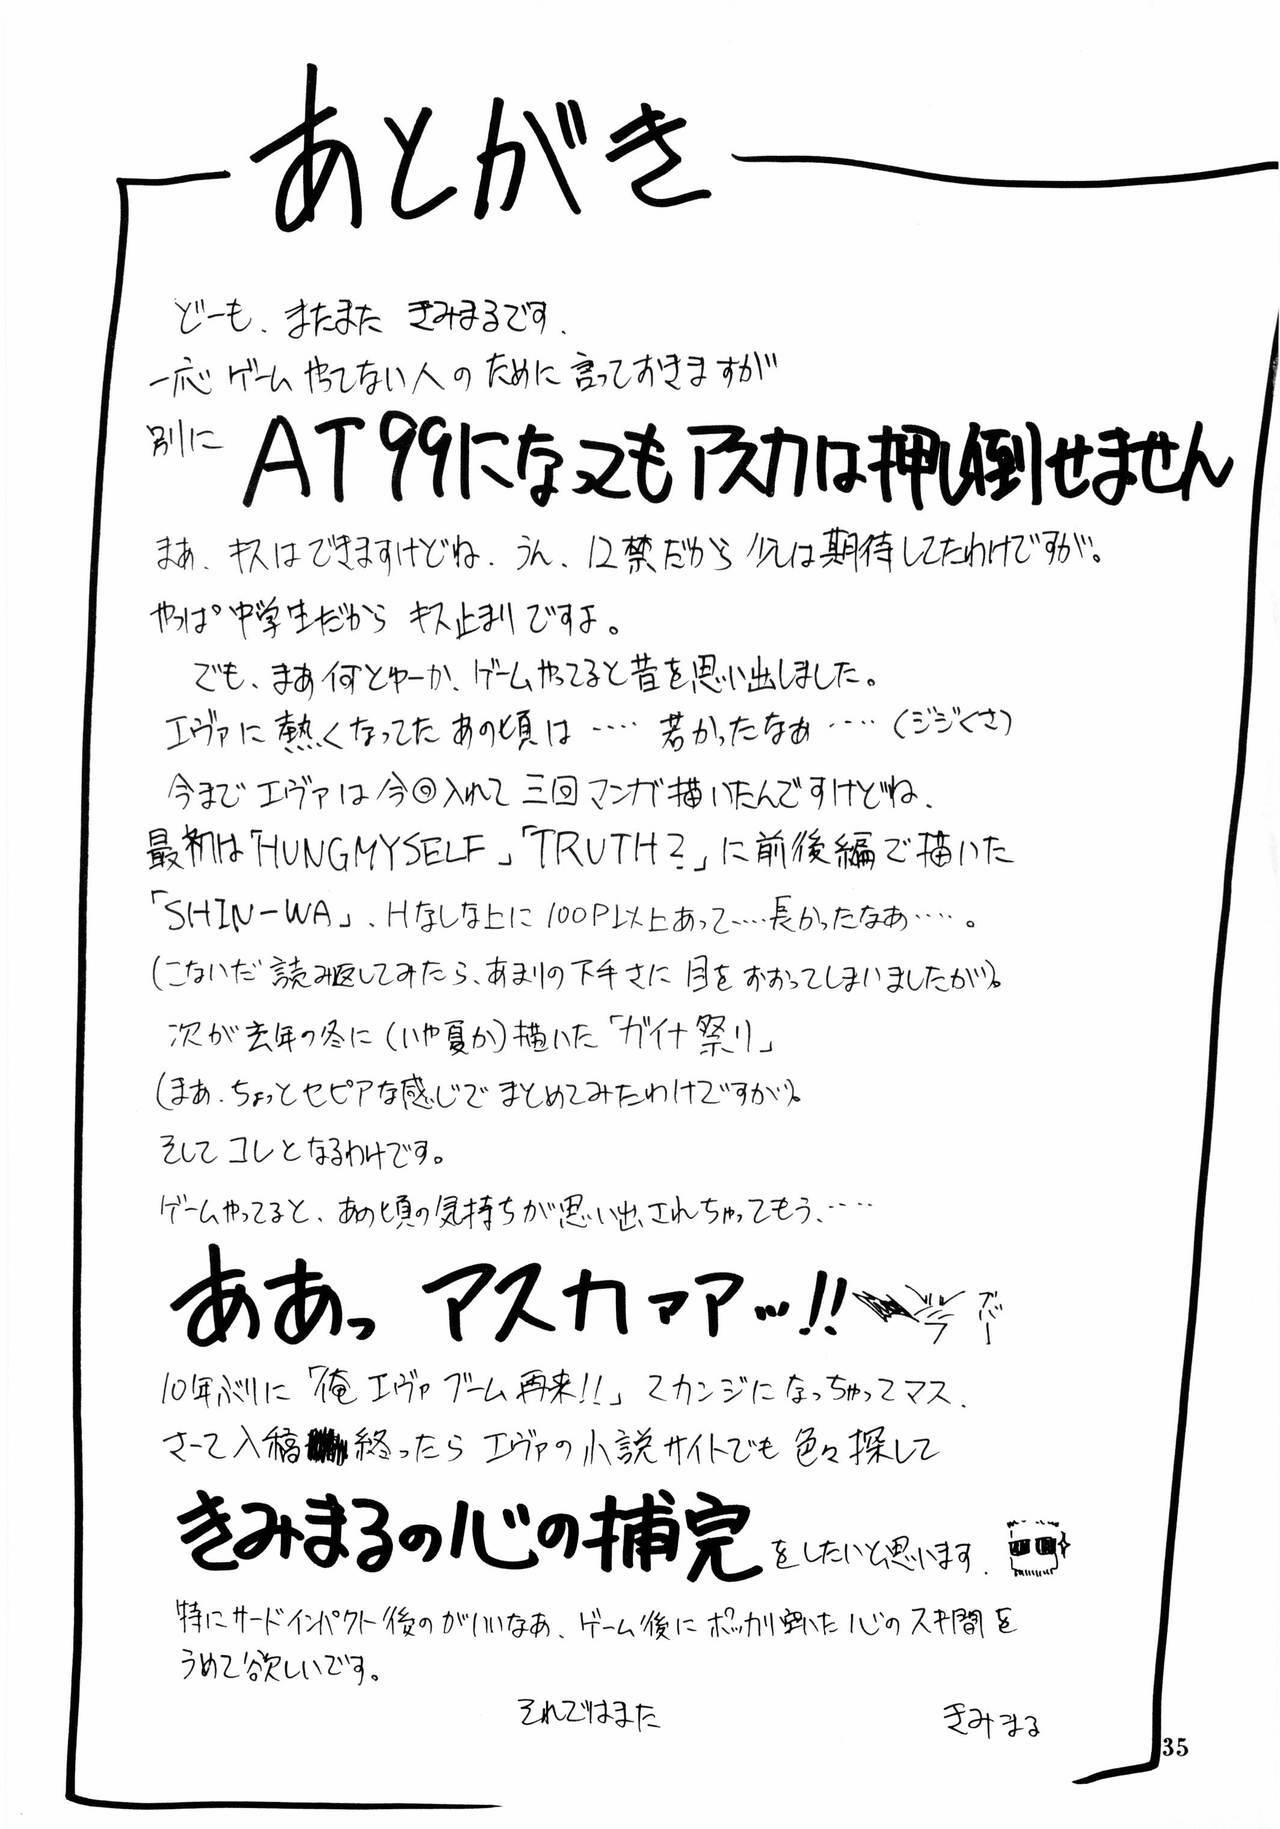 あとがき
どーも、またまた きみまるです.
一応 ゲーム やってない人の ために 言っておきますが
別に AT99になってもアスカは押し倒せません
まぁ、キスはできますけどね、うん、12禁だから 少しは期待してたわけですが。
やっぱ中学生だから キス止まりですよ。
でも、まぁ何とゆーか、ゲームやってると昔を思い出しました。
エヴァに 熱くなってた あの頃は ‥‥ 若かったなぁ ‥‥ (ジジくさ)
今まで エヴァは 今回入れて 三回マンガ描いたんですけどね、
最初は「HUNGMYSELF」「TRUTH?」に前後編で描いた
「SHIN-WA」、Hなしな上に 100P以上あって‥‥長かったなあ‥‥。
(こないだ 読み返してみたら、あまりの下手さに 目を おおってしまいましたが)。
次が 去年の冬に (いや夏か)描いた「ガイナ祭り」
(まぁ、ちょっとセピアな感じで まとめてみたわけですが)。
そして コレと なるわけです。
ゲームやってると、あの頃の気持ちが思い出されちゃってもう、‥‥
ああっ アスカァアッ!!
10年ぶりに「俺 エヴァ ブーム 再来!!」て カンジに なっちゃってマス.
さーて 入稿 終ったら エヴァの小説サイトでも 色々探して
きみまるの心の補完 をしたいと思います.
特に サードインパクト後のがいいなあ、ゲーム後に ポッカリ空いた 心の スキ間を
うめて欲しいです。
それではまた
きみまる
35